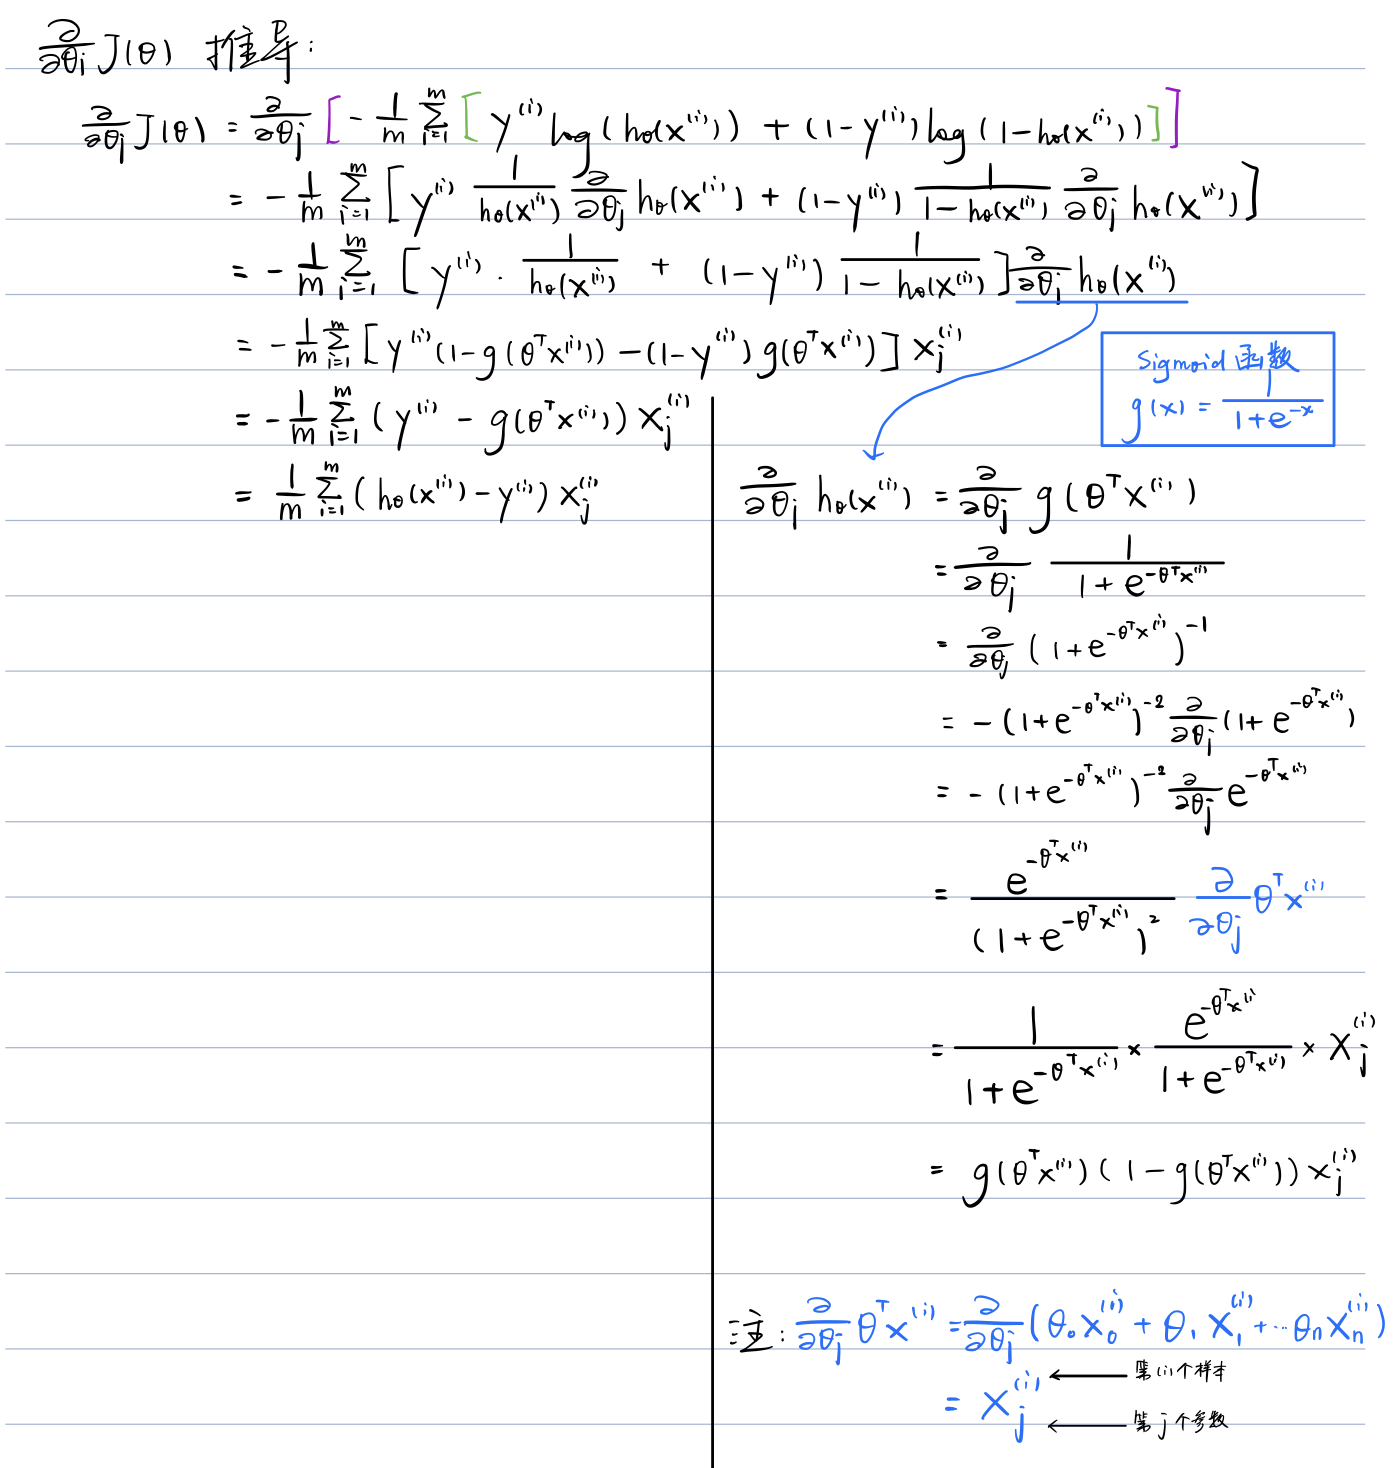 ∂/∂θj J(θ) 推导:
∂/∂θj J(θ) = ∂/∂θj [ - 1/m Σ_{i=1}^{m} [ y^(i) log(hθ(x^(i))) + (1-y^(i)) log(1-hθ(x^(i))) ] ]
= - 1/m Σ_{i=1}^{m} [ y^(i) 1/hθ(x^(i)) ∂/∂θj hθ(x^(i)) + (1-y^(i)) 1/(1-hθ(x^(i))) ∂/∂θj hθ(x^(i)) ]
= - 1/m Σ_{i=1}^{m} [ y^(i) · 1/hθ(x^(i)) + (1-y^(i)) 1/(1-hθ(x^(i))) ] ∂/∂θj hθ(x^(i))
= - 1/m Σ_{i=1}^{m} [ y^(i) (1-g(θ^T x^(i))) - (1-y^(i)) g(θ^T x^(i)) ] x_j^(i)
= - 1/m Σ_{i=1}^{m} ( y^(i) - g(θ^T x^(i)) ) x_j^(i)
= 1/m Σ_{i=1}^{m} ( hθ(x^(i)) - y^(i) ) x_j^(i)
Sigmoid 函数
g(x) = 1/(1+e^{-x})
∂/∂θj hθ(x^(i)) = ∂/∂θj g(θ^T x^(i))
= ∂/∂θj 1/(1+e^{-θ^T x^(i)})
= ∂/∂θj (1+e^{-θ^T x^(i)})^{-1}
= - (1+e^{-θ^T x^(i)})^{-2} ∂/∂θj (1+e^{-θ^T x^(i)})
= - (1+e^{-θ^T x^(i)})^{-2} ∂/∂θj e^{-θ^T x^(i)}
= e^{-θ^T x^(i)}/(1+e^{-θ^T x^(i)})^2 ∂/∂θj θ^T x^(i)
= 1/(1+e^{-θ^T x^(i)}) × e^{-θ^T x^(i)}/(1+e^{-θ^T x^(i)}) × x_j^(i)
= g(θ^T x^(i)) (1-g(θ^T x^(i))) x_j^(i)
注: ∂/∂θj θ^T x^(i) = ∂/∂θj (θ0 x_0^(i) + θ1 x_1^(i) + ··· θn x_n^(i))
= x_j^(i)
第(i)个样本
第j个参数